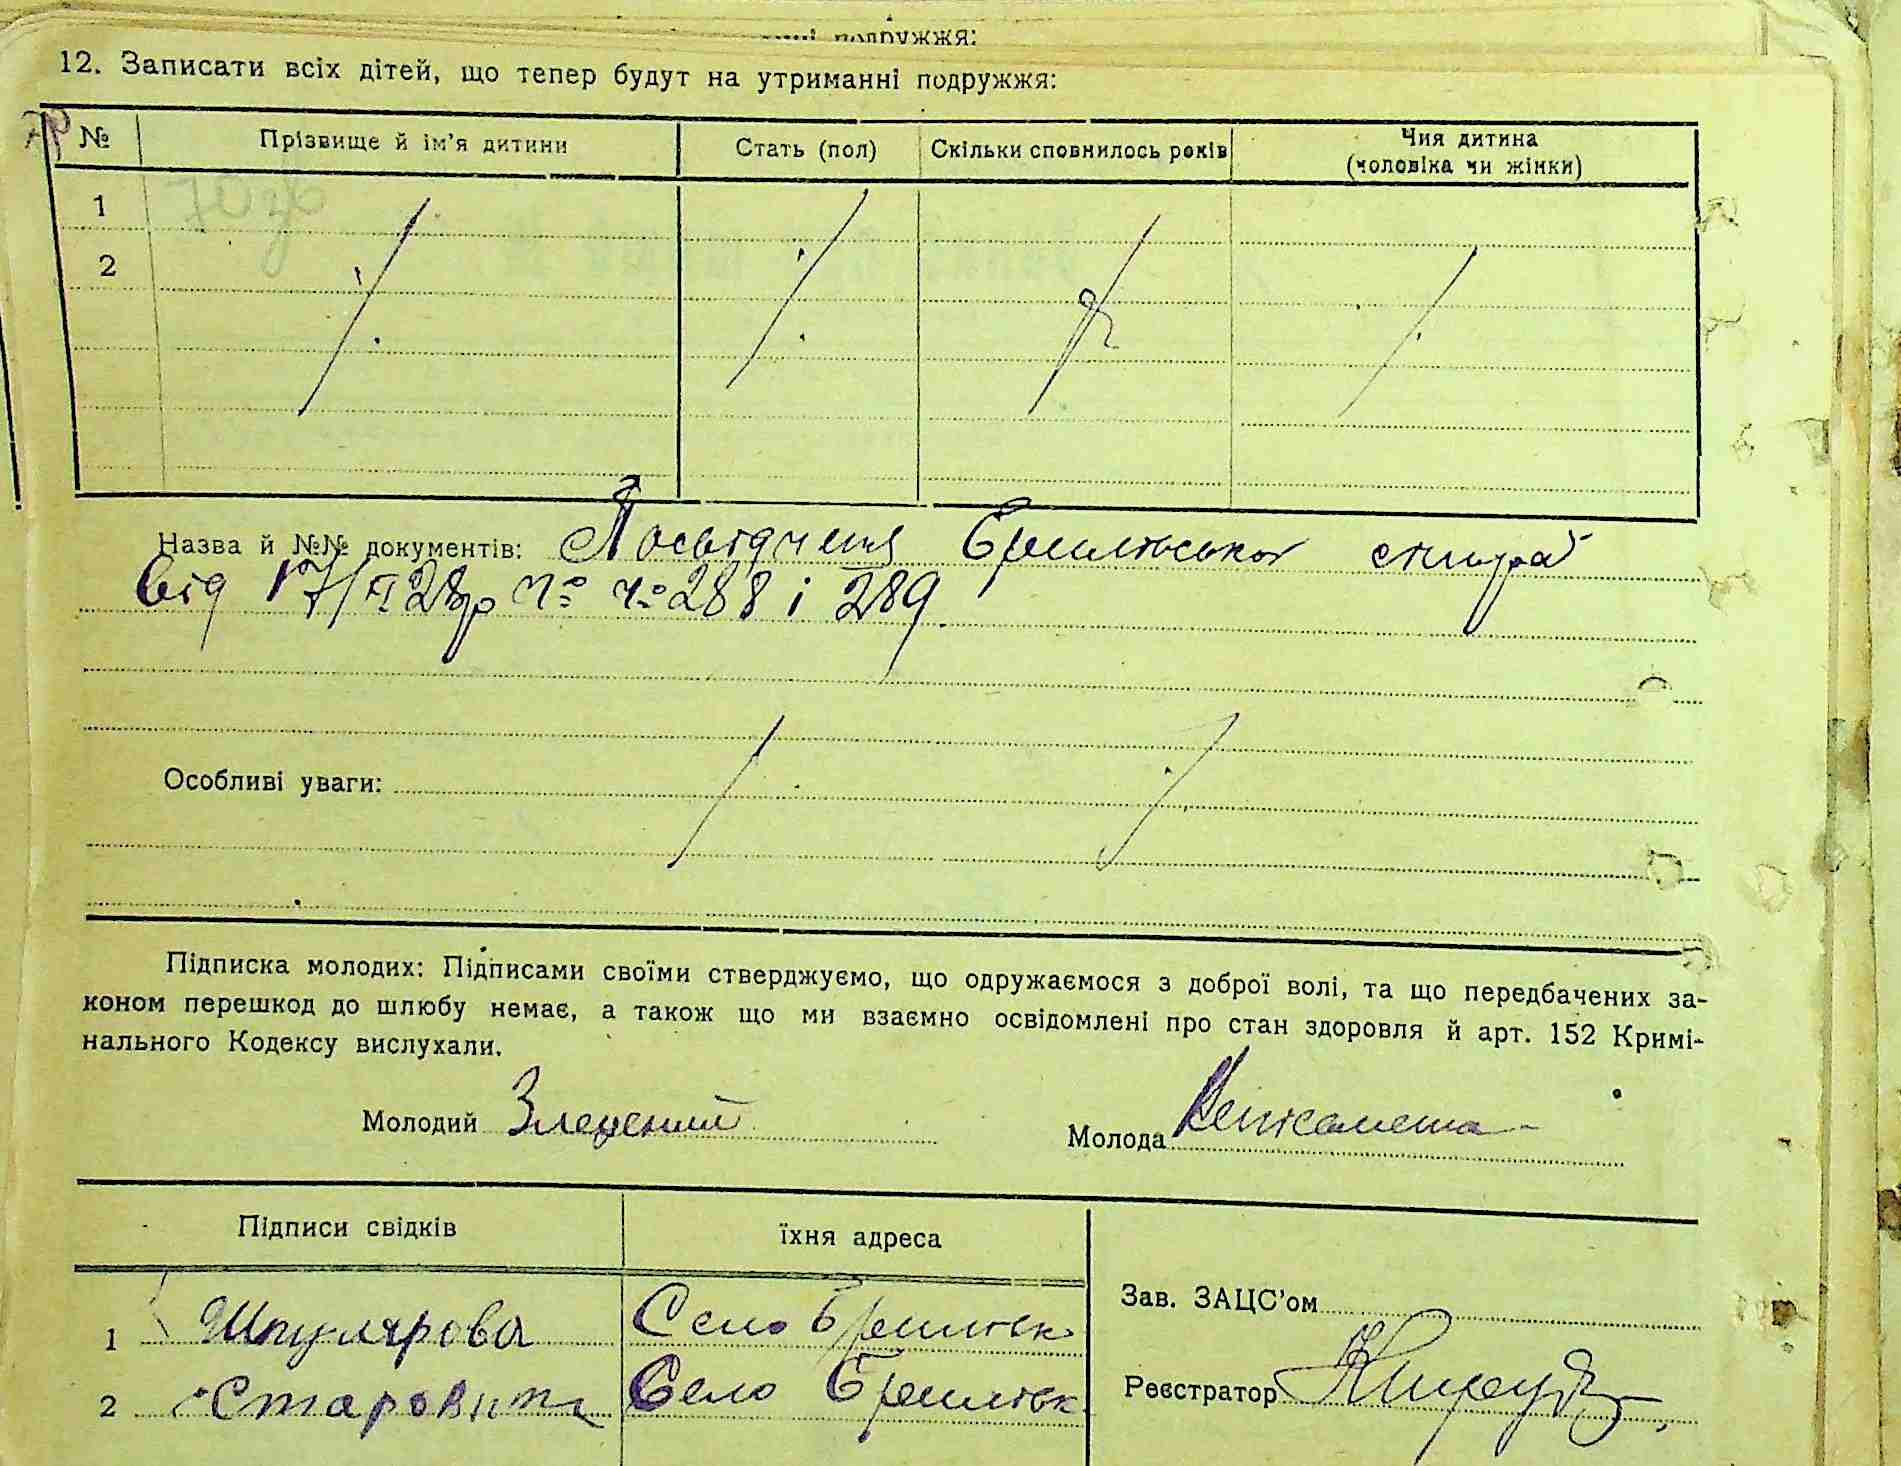 подружжя:
12. Записати всіх дітей, що тепер будут на утриманні подружжя:
№ Прізвище й ім'я дитини Стать (пол) Скільки сповнилось років Чия дитина
(чоловіка чи жінки)
1
2
Назва й №№ документів: Посвідчення
від 17/ 28р № № 288 і 289.
Особливі уваги:
Підписка молодих: Підписами своїми стверджуємо, що одружаємося з доброї волі, та що передбачених за-
коном перешкод до шлюбу немає, а також що ми взаємно освідомлені про стан здоровля й арт. 152 Кримі-
нального Кодексу вислухали.
Молодий Молода
Підписи свідків їхня адреса
Зав. ЗАЦС'ом
1 Шпулярова Село
2 Село
Реєстратор